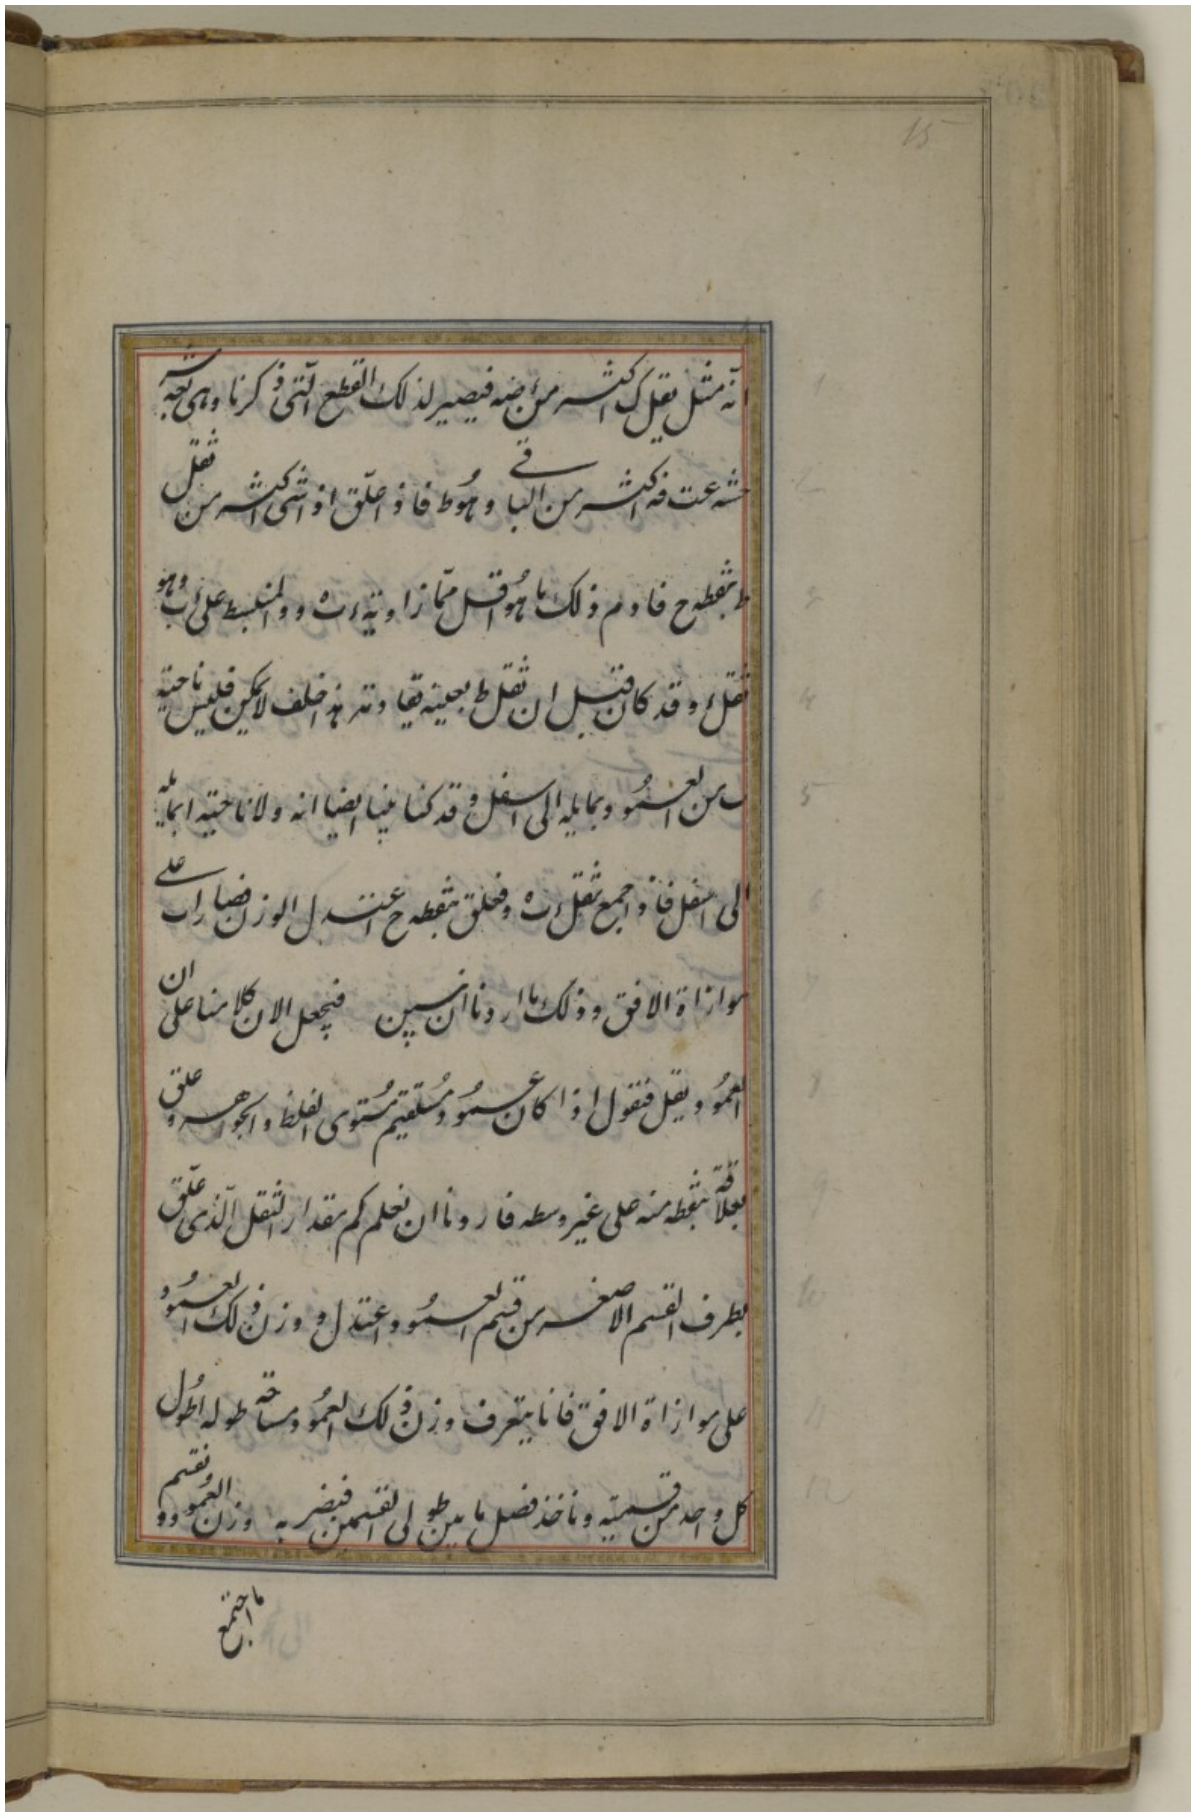 15
انه مثل ثقل ك اكثر من ارضه فيصير لذلك القطع التى ذكرنا وهى تعبر
عت فه اكثر من الباقى وهو ط فاذ اعلق اذ اشى اكثر من ثقل
ط بنقطه ح فاوم ذلك ما هو اقل مما زاويته ء ب ه و والمنبسط على ا ب وهو
ثقل ء وقد كان قبل ان ثقل ط بعينه يقاومه هذا خلف لا يمكن فليس ناحيته
ب من العمود بمايله الى اسفل وقد كنا بينا ايضا انه ولا ناحيته ا بمايله
الى اسفل فاذ اجمع ثقل ء ب ه و فعلق بنقطه ح اعتدل الوزن فصار ا ب على
موازاة الافق وذلك ما اردنا ان نبين فنجعل الان كلامنا على ان
العمود يقل فنقول اذا كان عمود مستقيم مستوى الغلظ والجواهر وعلق
بعلاقة بنقطه منه على غير وسطه فاردنا ان نعلم كم مقدار الثقل الذى علق
بطرف القسم الاصغر من قسم العمود واعتدل و وزن ذلك العمود
على موازاة الافق فانا نتعرف وزن ذلك العمود ومساحة طوله اطول
كل واحد من قسميه وناخذ فضل ما بين طولى القسمين فنضر به وزن العمود ونقسم
ما اجتمع
1
2
3
4
5
6
7
8
9
10
11
12